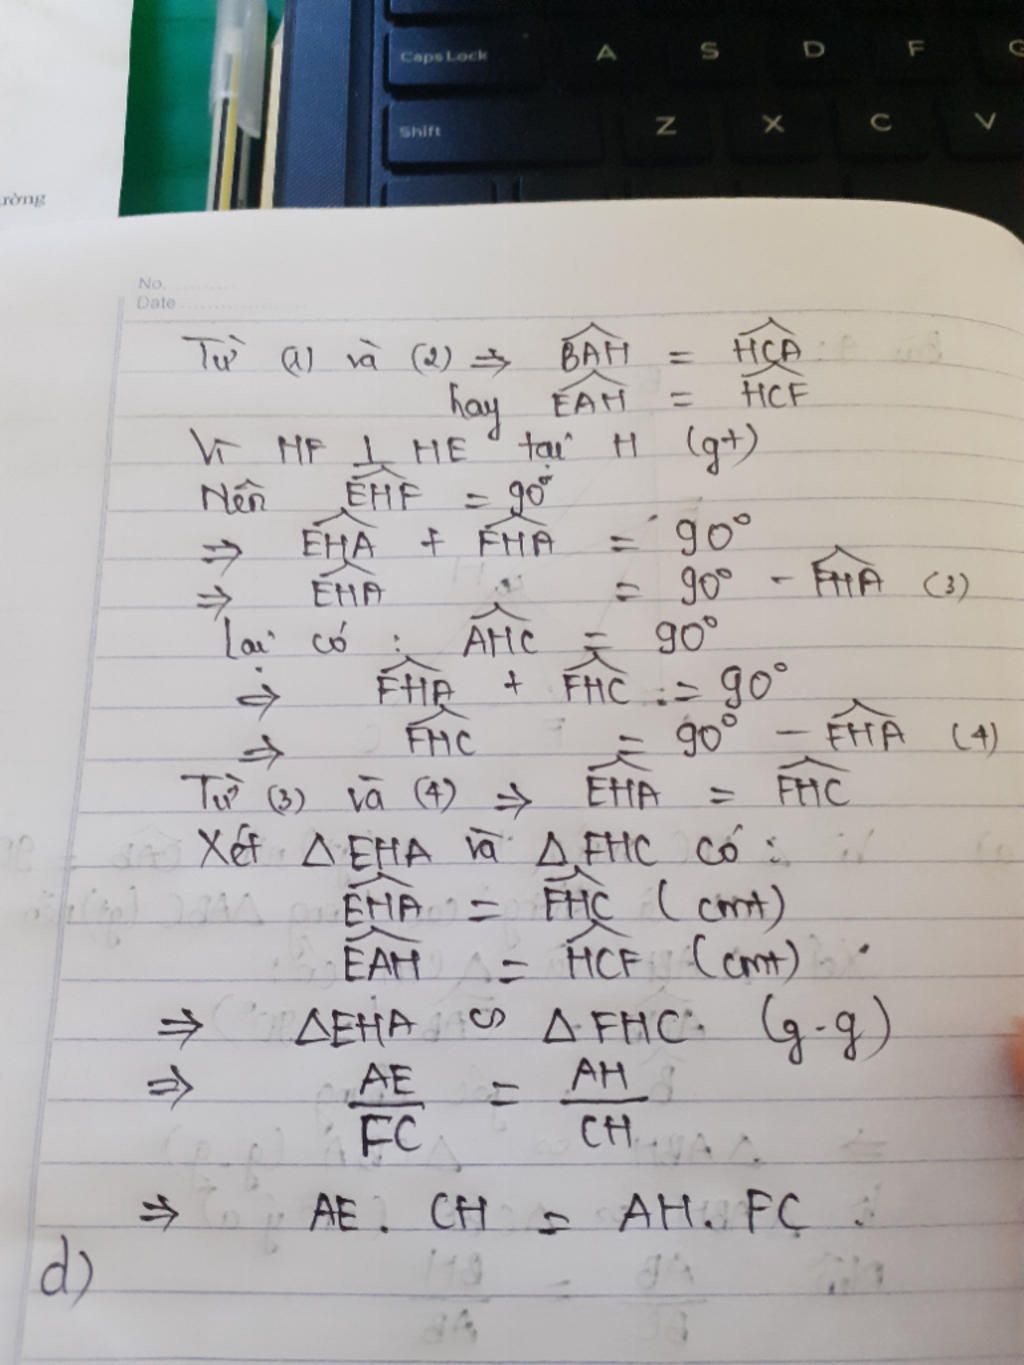 Caps Lock A S D F G
Shift Z X C V
ường
No.
Date
Từ (1) và (2) ⇒ \widehat{BAH} = \widehat{HCA}
hay \widehat{EAH} = \widehat{HCF}
Vì HF ⊥ HE tại H (gt)
Nên \widehat{EHF} = 90°
⇒ \widehat{EHA} + \widehat{FHA} = 90°
⇒ \widehat{EHA} = 90° - \widehat{FHA} (3)
Lại có : \widehat{AHC} = 90°
⇒ \widehat{FHA} + \widehat{FHC} = 90°
⇒ \widehat{FHC} = 90° - \widehat{FHA} (4)
Từ (3) và (4) ⇒ \widehat{EHA} = \widehat{FHC}
Xét △EHA và △FHC có :
\widehat{EHA} = \widehat{FHC} (cmt)
\widehat{EAH} = \widehat{HCF} (cmt)
⇒ △EHA ∽ △FHC (g-g)
⇒ \frac{AE}{FC} = \frac{AH}{CH}
⇒ AE . CH = AH . FC .
d)